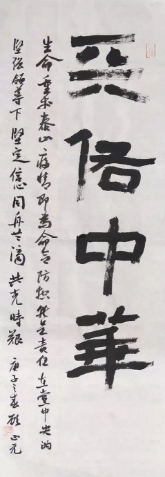 天佑中華
生命重于泰山疫情即為命令防控就是責任在黨中央的
堅强領導下堅定信心同舟共濟共克時艱 庚子之春 正元